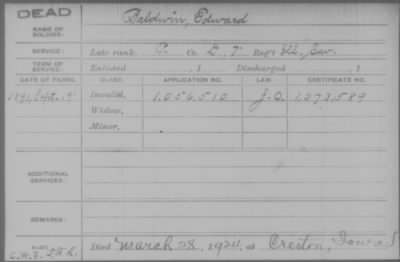 DEAD
NAME OF SOLDIER:
Baldwin, Edward
SERVICE:
Late rank, P. Co. D, 7" Reg't Ill. Cav.
TERM OF SERVICE:
Enlisted , 1 Discharged , 1
DATE OF FILING. CLASS. APPLICATION NO. LAW. CERTIFICATE NO.
1891, Invalid, 1.056,510 J.O. 1,073,589
Widow,
Minor,
ADDITIONAL SERVICES:
REMARKS:
Died March 28, 1924, at Creston, Iowa